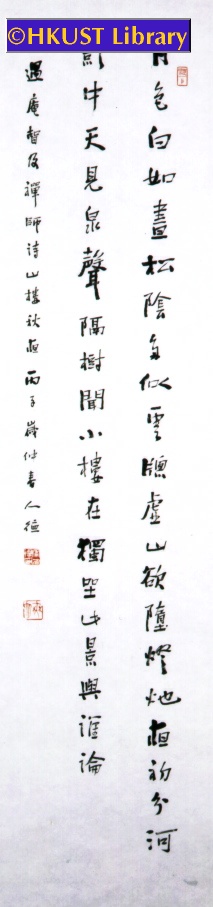 ©HKUST Library
月色白如晝松陰多似雲牕虛山欲墮燈灺夜初分河
影中天見泉聲隔樹聞小樓在獨坐此景與誰論
愚庵智及禪師詩山樓秋夜 丙子歲仲春人德